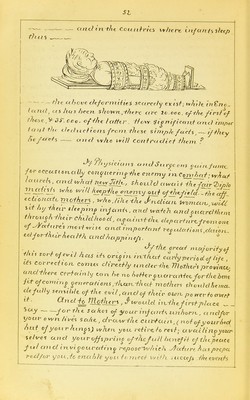 52
— — — — and in the countries where infants sleep
thus — — —
— — — — the above deformities scarcely exist; while in Eng-
land, as has been shown, there are 20.000. of the first of
these, & 35.000. of the latter. How significant and impor
tant the deductions from these simple facts, — if they
be facts — and who will contradict them?
If Physicians and Surgeons gain fame
for occasionally conquering the enemy in Combat; what
laurels, and what new Title, should await the fair Diplo
matists who will keep the enemy out of the field — the aff-
ectionate mothers, who, like the Indian woman, will
sit by their sleeping infants, and watch and guard them
through their childhood, against the departure from one
of Nature's most wise and important regulations, design-
ed for their health and happiness.
If the great majority of
this sort of evil has its origin in that early period of life,
its correction comes directly under the Mother's province,
and there certainly can be no better guarantee for the bene
fit of coming generations, than, that mothers should be ma
de fully sensible of the evil, and of their own power to avert
it. And to Mothers, I would in the first place —
say — for the sakes of your infants unborn, and for
your own lives' sake, draw the curtain, (not of your bed
but of your lungs) when you retire to rest; availing your
selves and your offspring of the full benefit of the peace
ful and invigorating repose which Nature has prepa
red for you, to enable you to meet with success the events